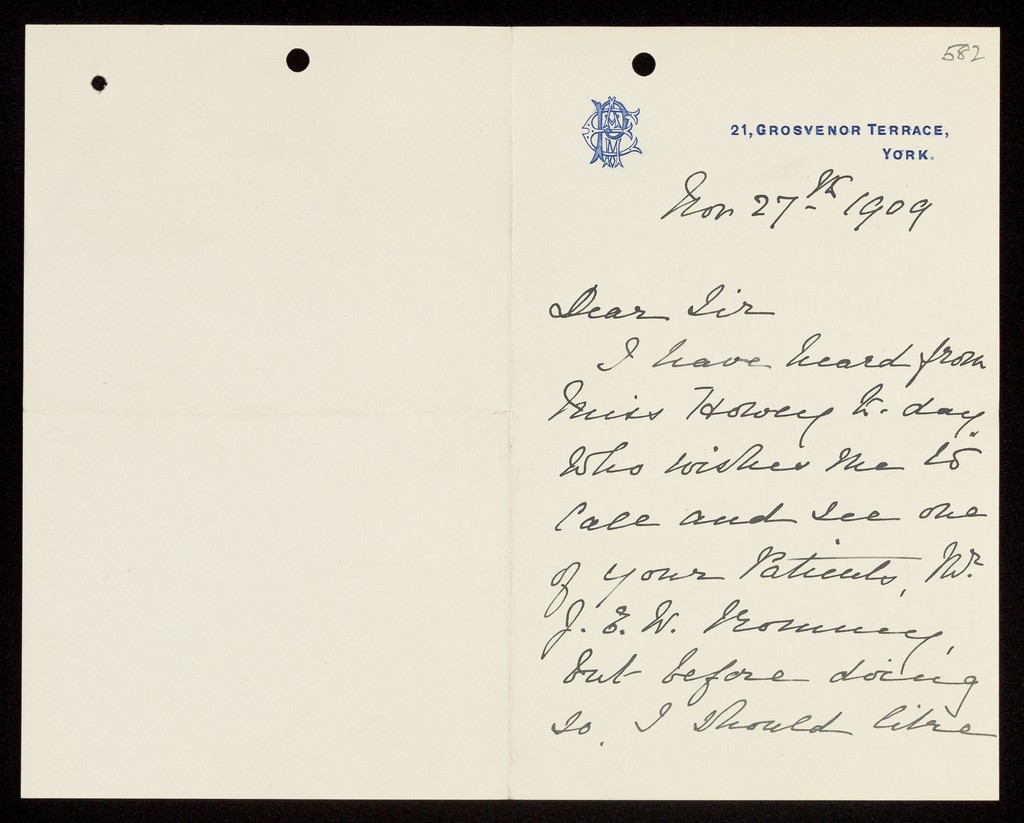 582
21, GROSVENOR TERRACE,
YORK.
Nov 27th 1909
Dear Sir
I have heard from
Miss Howey to. day
who wishes me to
Call and see one
of your Patients, Mr.
J. E. W. Romney,
but before doing
so, I should like